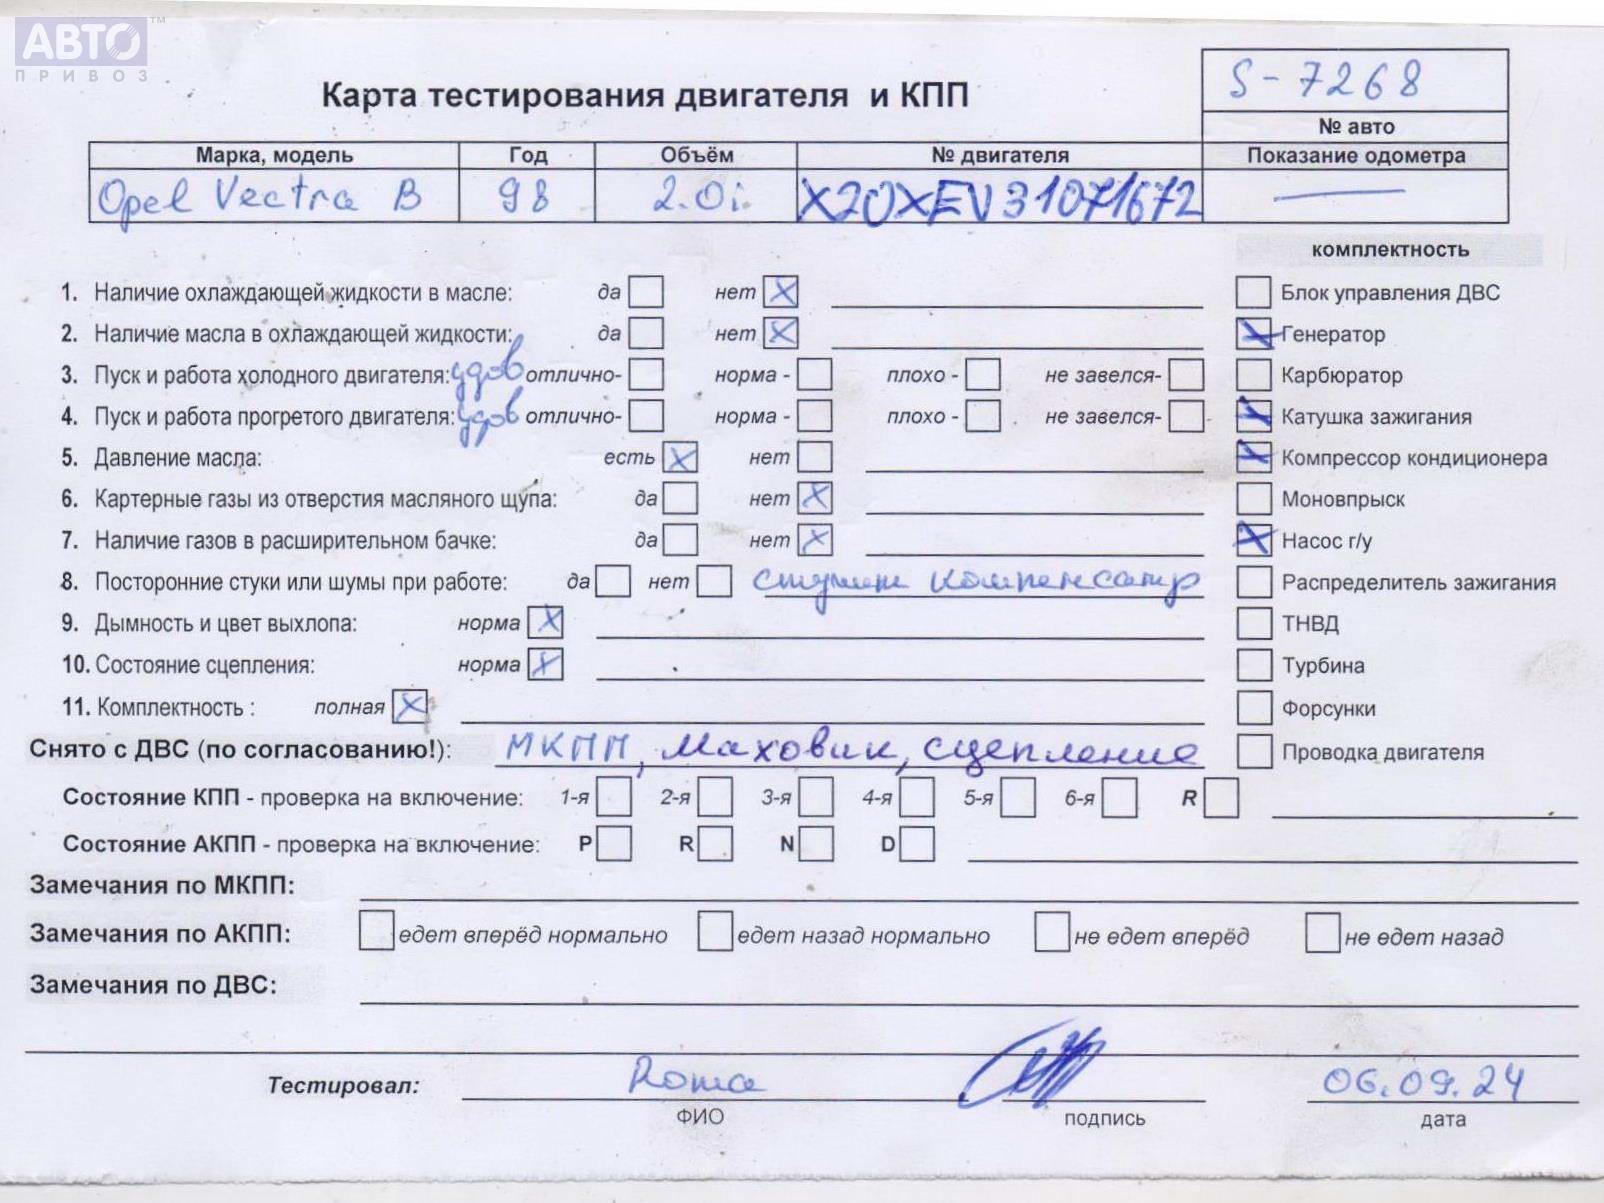 АВТО™
ПРИВОЗ
Карта тестирования двигателя и КПП
S-7268
№ авто
Марка, модель Год Объём № двигателя Показание одометра
Opel Vectra B 98 2.0i X20XEV31071672 —
комплектность
1. Наличие охлаждающей жидкости в масле: да нет X Блок управления ДВС
2. Наличие масла в охлаждающей жидкости: да нет X X Генератор
3. Пуск и работа холодного двигателя: удов отлично- норма - плохо - не завелся- Карбюратор
4. Пуск и работа прогретого двигателя: удов отлично- норма - плохо - не завелся- X Катушка зажигания
5. Давление масла: есть X нет X Компрессор кондиционера
6. Картерные газы из отверстия масляного щупа: да нет X Моновпрыск
7. Наличие газов в расширительном бачке: да нет X X Насос г/у
8. Посторонние стуки или шумы при работе: да нет стучит компенсатр Распределитель зажигания
9. Дымность и цвет выхлопа: норма X ТНВД
10. Состояние сцепления: норма X Турбина
11. Комплектность : полная X Форсунки
Снято с ДВС (по согласованию!): МКПП, Маховик, сцепление Проводка двигателя
Состояние КПП - проверка на включение: 1-я 2-я 3-я 4-я 5-я 6-я R
Состояние АКПП - проверка на включение: P R N D
Замечания по МКПП:
Замечания по АКПП: едет вперёд нормально едет назад нормально не едет вперёд не едет назад
Замечания по ДВС:
Тестировал: Рома 06.09.24
ФИО подпись дата